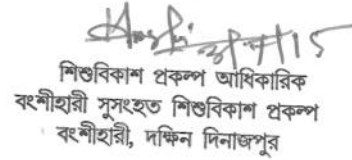 শিশুবিকাশ প্রকল্প আধিকারিক
বংশীহারী সুসংহত শিশুবিকাশ প্রকল্প
বংশীহারী, দক্ষিন দিনাজপুর